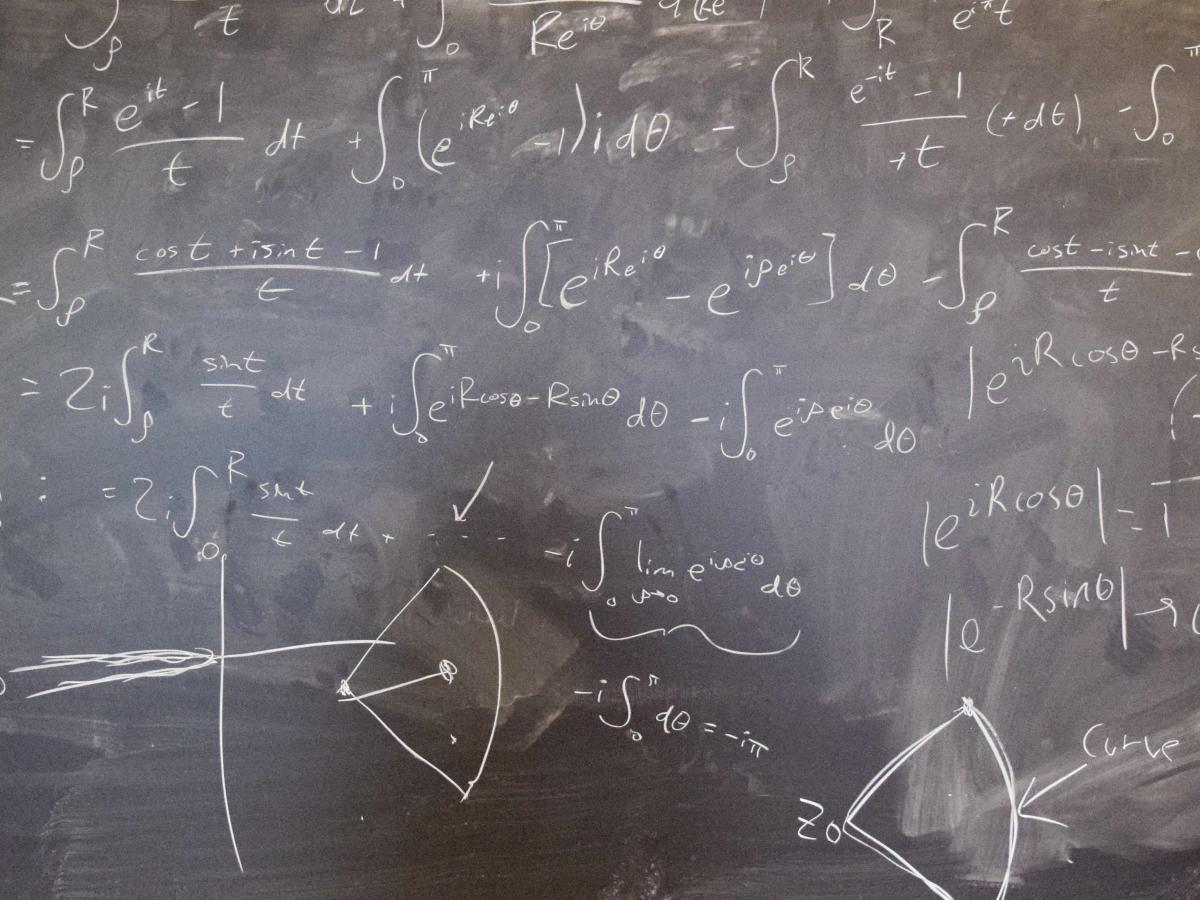 ∫_ρ t dt + ∫_0 Re^{iθ} ∫_R e^{iπ}t
= ∫_ρ^R (e^{it} - 1)/t dt + ∫_0^π (e^{iRe^{iθ}} - 1) i dθ - ∫_ρ^R (e^{-it} - 1)/(+t) (+dt) - ∫_0^π
= ∫_ρ^R (cos t + i sin t - 1)/t dt + i ∫_0^π [e^{iRe^{iθ}} - e^{iρe^{iθ}}] dθ - ∫_ρ^R (cos t - i sin t -)/t
= 2i ∫_ρ^R (sin t)/t dt + i ∫_0^π e^{iR cos θ - R sin θ} dθ - i ∫_0^π e^{iρe^{iθ}} dθ |e^{iR cos θ - R s
: = 2i ∫_0^R (sin t)/t dt + - - - - - i ∫_0^π lim_{ρ→0} e^{iρe^{iθ}} dθ |e^{iR cos θ}| = 1
|e^{-R sin θ}| →
-i ∫_0^π dθ = -iπ
Curve
Z_0